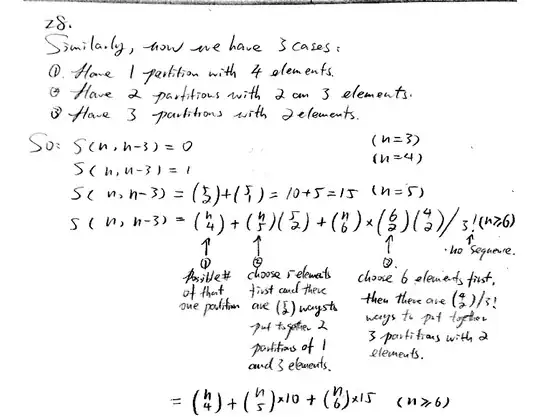 28.
Similarly, now we have 3 cases:
① Have 1 partition with 4 elements.
② Have 2 partitions with 2 an 3 elements.
③ Have 3 partitions with 2 elements.
So: S(n, n-3) = 0 (n=3)
S(n, n-3) = 1 (n=4)
S(n, n-3) = (5 2) + (5 1) = 10+5 = 15 (n=5)
S(n, n-3) = (n 4) + (n 5)(5 2) + (n 6) × (6 2)(4 2) / 3! (n≥6)
no sequence.
① ② ③
possible # choose 5 elements choose 6 elements first,
of that first and there then there are (4 2)/3!
one partition are (5 2) ways to ways to put together
put together 2 3 partitions with 2
partitions of 1 elements.
and 3 elements.
= (n 4) + (n 5)×10 + (n 6)×15 (n≥6)